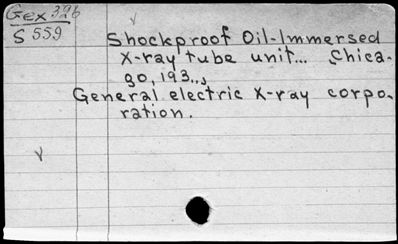 Gex 326
S 559
Shockproof Oil-Immersed
X-ray tube unit... Chica-
go, 193..,
General electric X-ray corpo-
ration.